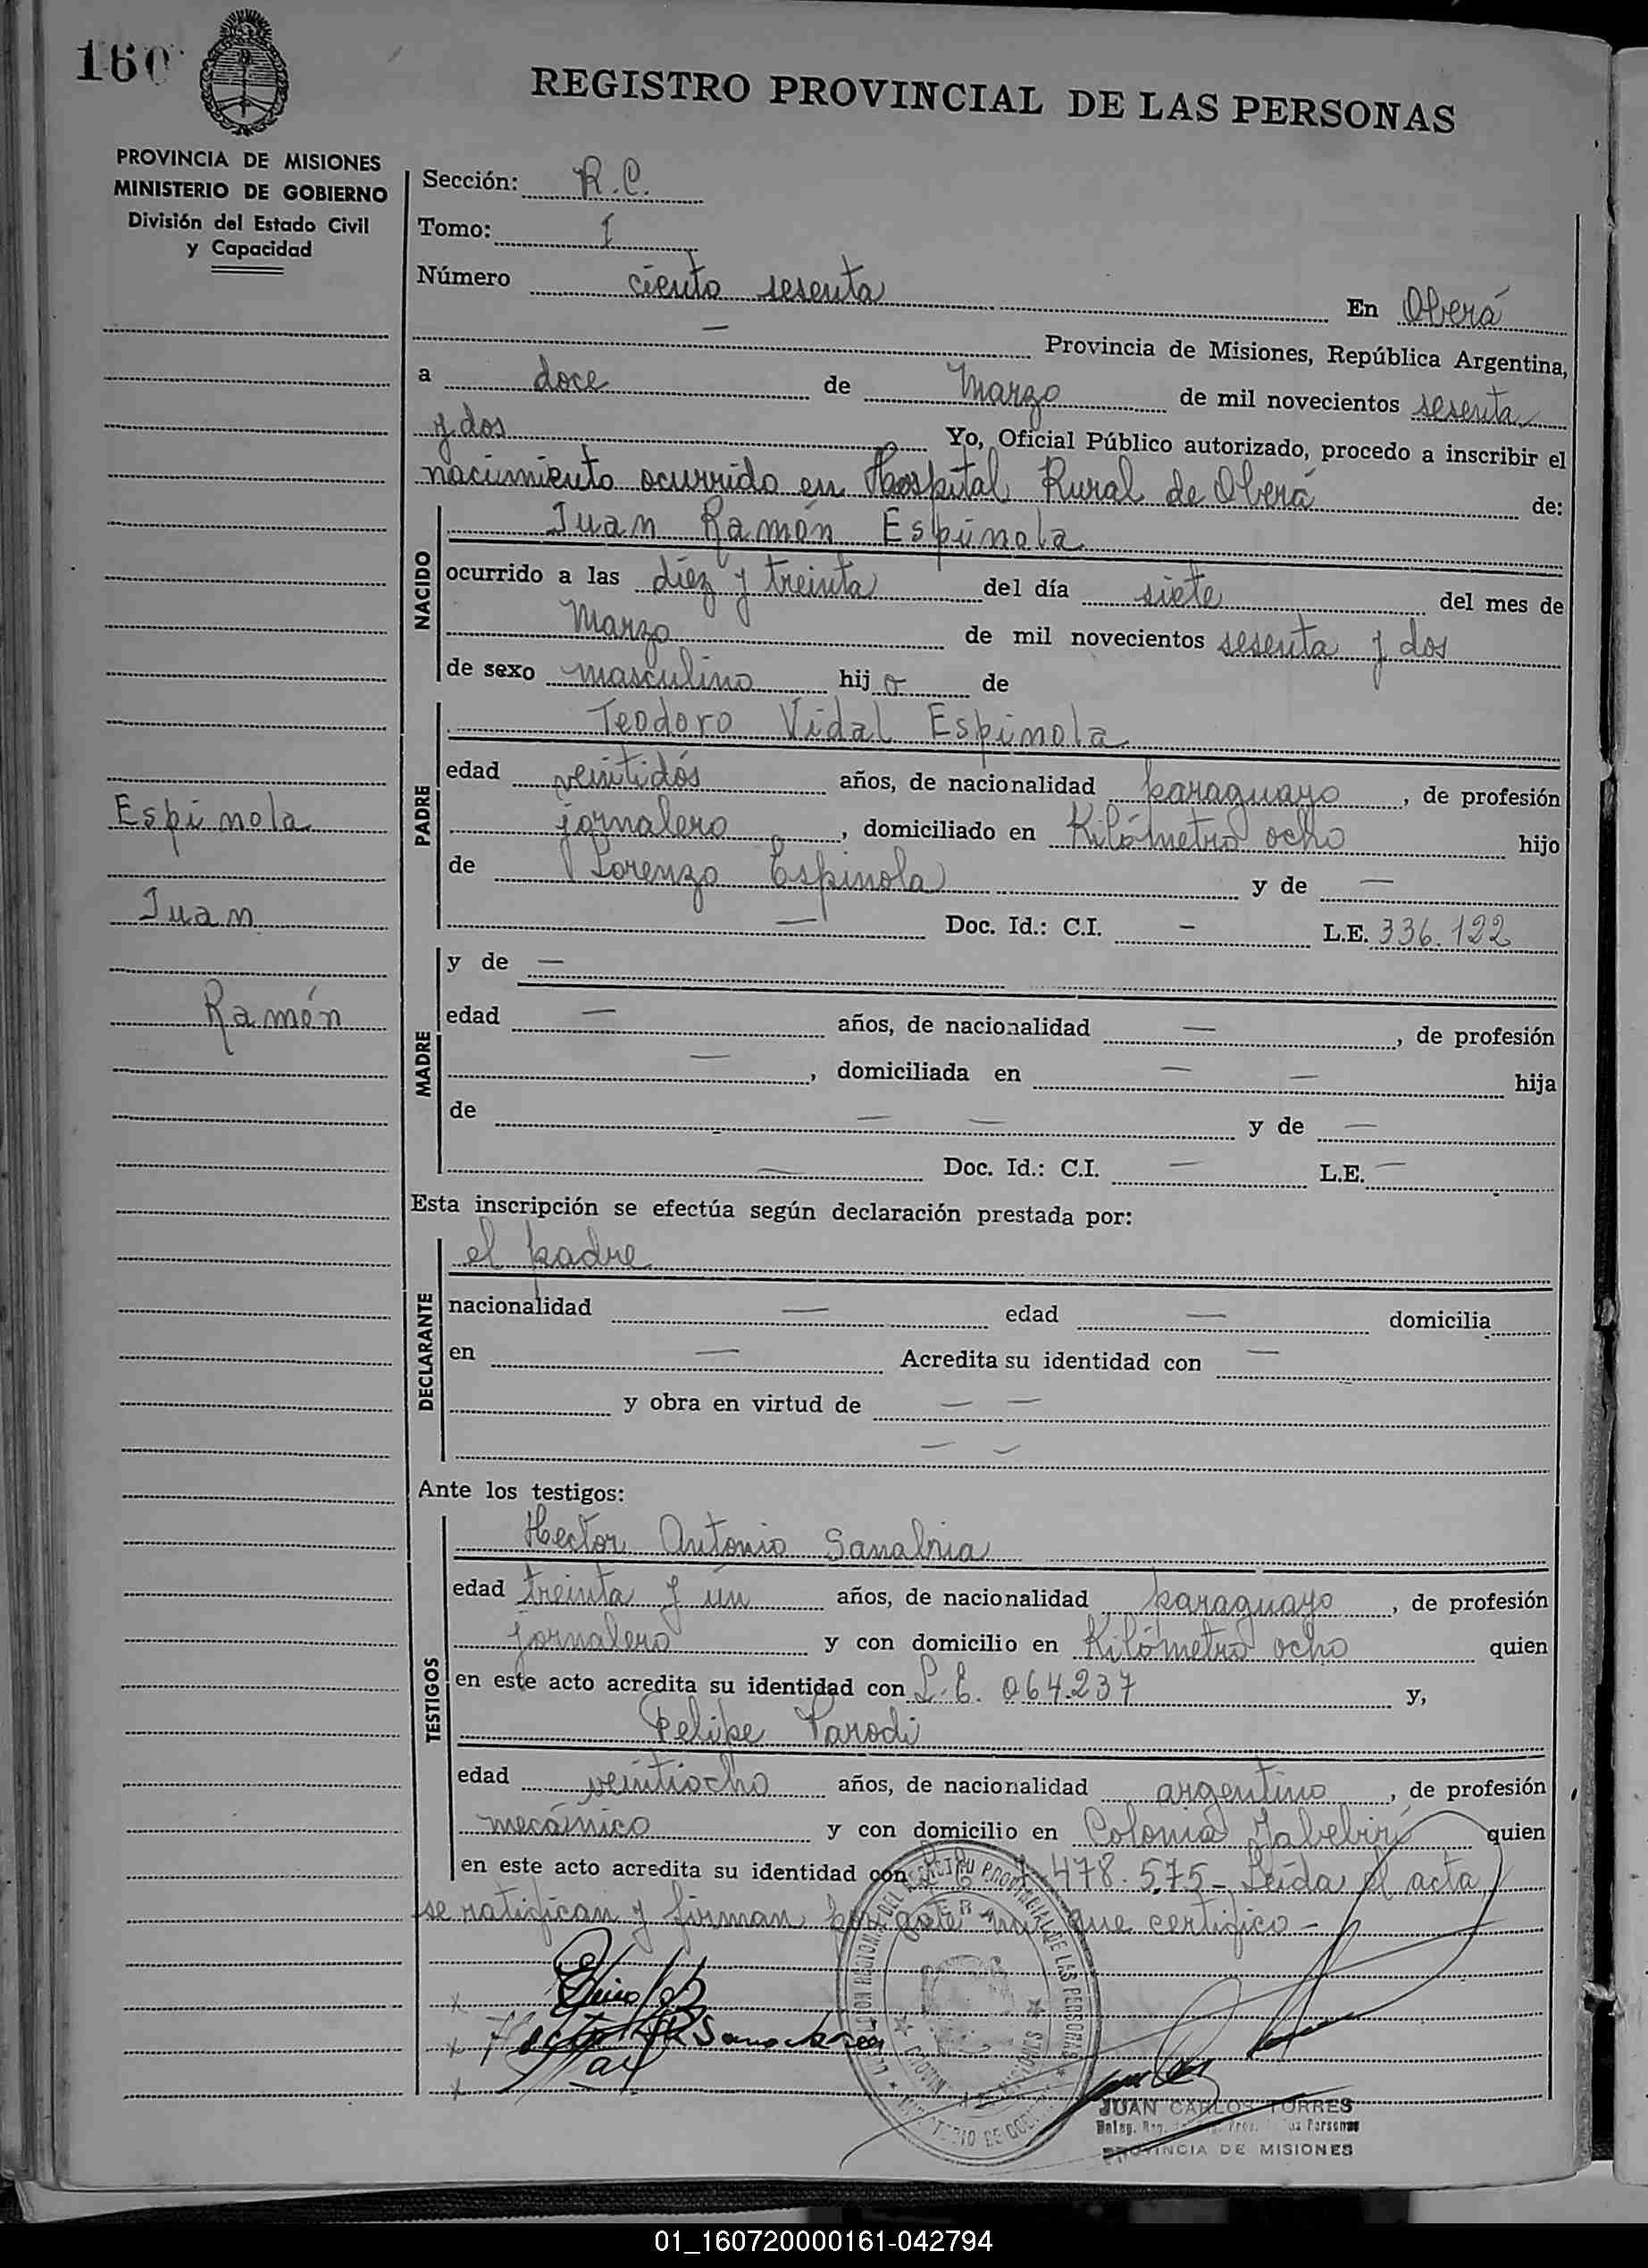 160
REGISTRO PROVINCIAL DE LAS PERSONAS
PROVINCIA DE MISIONES
MINISTERIO DE GOBIERNO
División del Estado Civil
y Capacidad
Espínola
Juan
Ramón
Sección: R.C.
Tomo: I
Número ciento sesenta En Oberá
— Provincia de Misiones, República Argentina,
a doce de Marzo de mil novecientos sesenta
y dos Yo, Oficial Público autorizado, procedo a inscribir el
nacimiento ocurrido en Hospital Rural de Oberá de:
NACIDO
Juan Ramón Espínola
ocurrido a las diez y treinta del día siete del mes de
Marzo de mil novecientos sesenta y dos
de sexo masculino hijo de
PADRE
Teodoro Vidal Espínola
edad veintidós años, de nacionalidad paraguayo, de profesión
jornalero, domiciliado en Kilómetro ocho hijo
de Lorenzo Espínola y de —
— Doc. Id.: C.I. — L.E. 336.122
MADRE
y de —
edad — años, de nacionalidad —, de profesión
—, domiciliada en — — hija
de — — y de —
— Doc. Id.: C.I. — L.E. —
Esta inscripción se efectúa según declaración prestada por:
DECLARANTE
el padre
nacionalidad — edad — domicilia
en — Acredita su identidad con —
y obra en virtud de — —
— —
Ante los testigos:
TESTIGOS
Hector Antonio Sanabria
edad treinta y ún años, de nacionalidad paraguayo, de profesión
jornalero y con domicilio en Kilómetro ocho quien
en este acto acredita su identidad con L.E. 064.237 y,
Felipe Parodi
edad veintiocho años, de nacionalidad argentino, de profesión
mecánico y con domicilio en Colonia Yabebirí quien
en este acto acredita su identidad con 478.575- Leída el acta
se ratifican y firman por ante mí que certifico-
JUAN CARLOS TORRES
PROVINCIA DE MISIONES
01_160720000161-042794